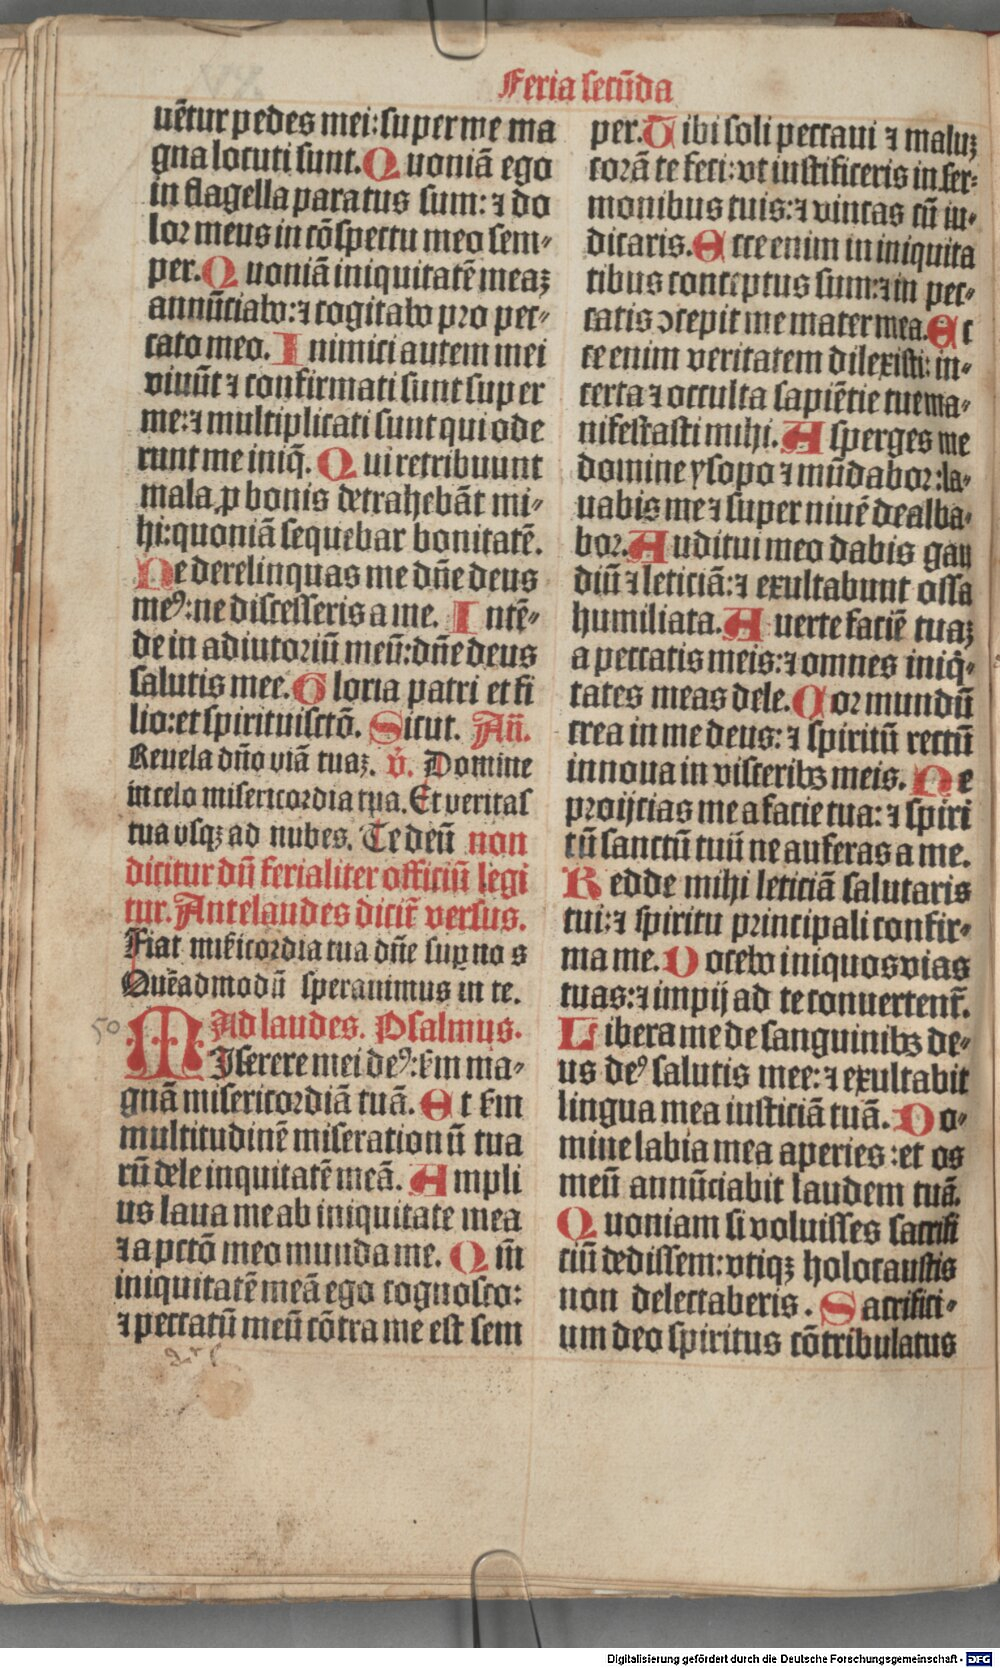 Feria secūda
uētur pedes mei: super me ma
gna locuti sunt. Quoniā ego
in flagella paratus sum: ⁊ do
lor meus in cōspectu meo sem-
per. Quoniā iniquitatē meaꝫ
annūciabo: ⁊ cogitabo pro pec-
cato meo. Inimici autem mei
viuūt ⁊ confirmati sunt super
me: ⁊ multiplicati sunt qui ode
runt me iniq̄. Qui retribuunt
mala ꝓ bonis detrahebāt mi-
hi: quoniā sequebar bonitatē.
Ne derelinquas me dn̄e deus
meꝰ: ne discesseris a me. Intē-
de in adiutoriū meū: dn̄e deus
salutis mee. Gloria patri et fi
lio: et spiritui sctō. Sicut. An̄.
Reuela dn̄o viā tuaꝫ. v̄. Domine
in celo misericordia tua. Et veritas
tua vsqꝫ ad nubes. Te deū non
dicitur dū ferialiter officiū legi
tur. Ante laudes dicit᷑ versus.
Fiat mīcordia tua dn̄e suꝑ no s
Quēadmodū sperauimus in te.
50 Ad laudes. Psalmus.
Miserere mei deꝰ: k̄m ma-
gnā misericordiā tuā. Et k̄m
multitudinē miserationū tua
rū dele inquitatē meā. Ampli
us laua me ab iniquitate mea
⁊ a pctō meo munda me. Qm̄
iniquitatē meā ego cognosco:
⁊ peccatū meū cōtra me est sem
per. Tibi soli peccaui ⁊ maluꝫ
corā te feci: vt iustificeris in ser-
monibus tuis: ⁊ vincas cū iu-
dicaris. Ecce enim in iniquita
tibus conceptus sum: ⁊ in pec-
catis ↄcepit me mater mea. Ec
ce enim veritatem dilexisti: in-
certa ⁊ occulta sapiētie tue ma-
nifestasti mihi. Asperges me
domine ysopo ⁊ mūdabor: la-
uabis me ⁊ super niuē dealba-
bor. Auditui meo dabis gau
diū ⁊ leticiā: ⁊ exultabunt ossa
humiliata. Auerte faciē tuaꝫ
a peccatis meis: ⁊ omnes iniq̄-
tates meas dele. Cor mundū
crea in me deus: ⁊ spiritū rectū
innoua in visceribꝫ meis. Ne
proijcias me a facie tua: ⁊ spiri
tū sanctū tuū ne auferas a me.
Redde mihi leticiā salutaris
tui: ⁊ spiritu principali confir-
ma me. Docebo iniquos vias
tuas: ⁊ impij ad te conuertent᷑.
Libera me de sanguinibꝫ de-
us deꝰ salutis mee: ⁊ exultabit
lingua mea iusticiā tuā. Do-
mine labia mea aperies: et os
meū annūciabit laudem tuā.
Quoniam si voluisses sacrifi
ciū dedissem: vtiqꝫ holocaustis
non delectaberis. Sacrifici-
um deo spiritus cōtribulatus
Digitalisierung gefördert durch die Deutsche Forschungsgemeinschaft - DFG